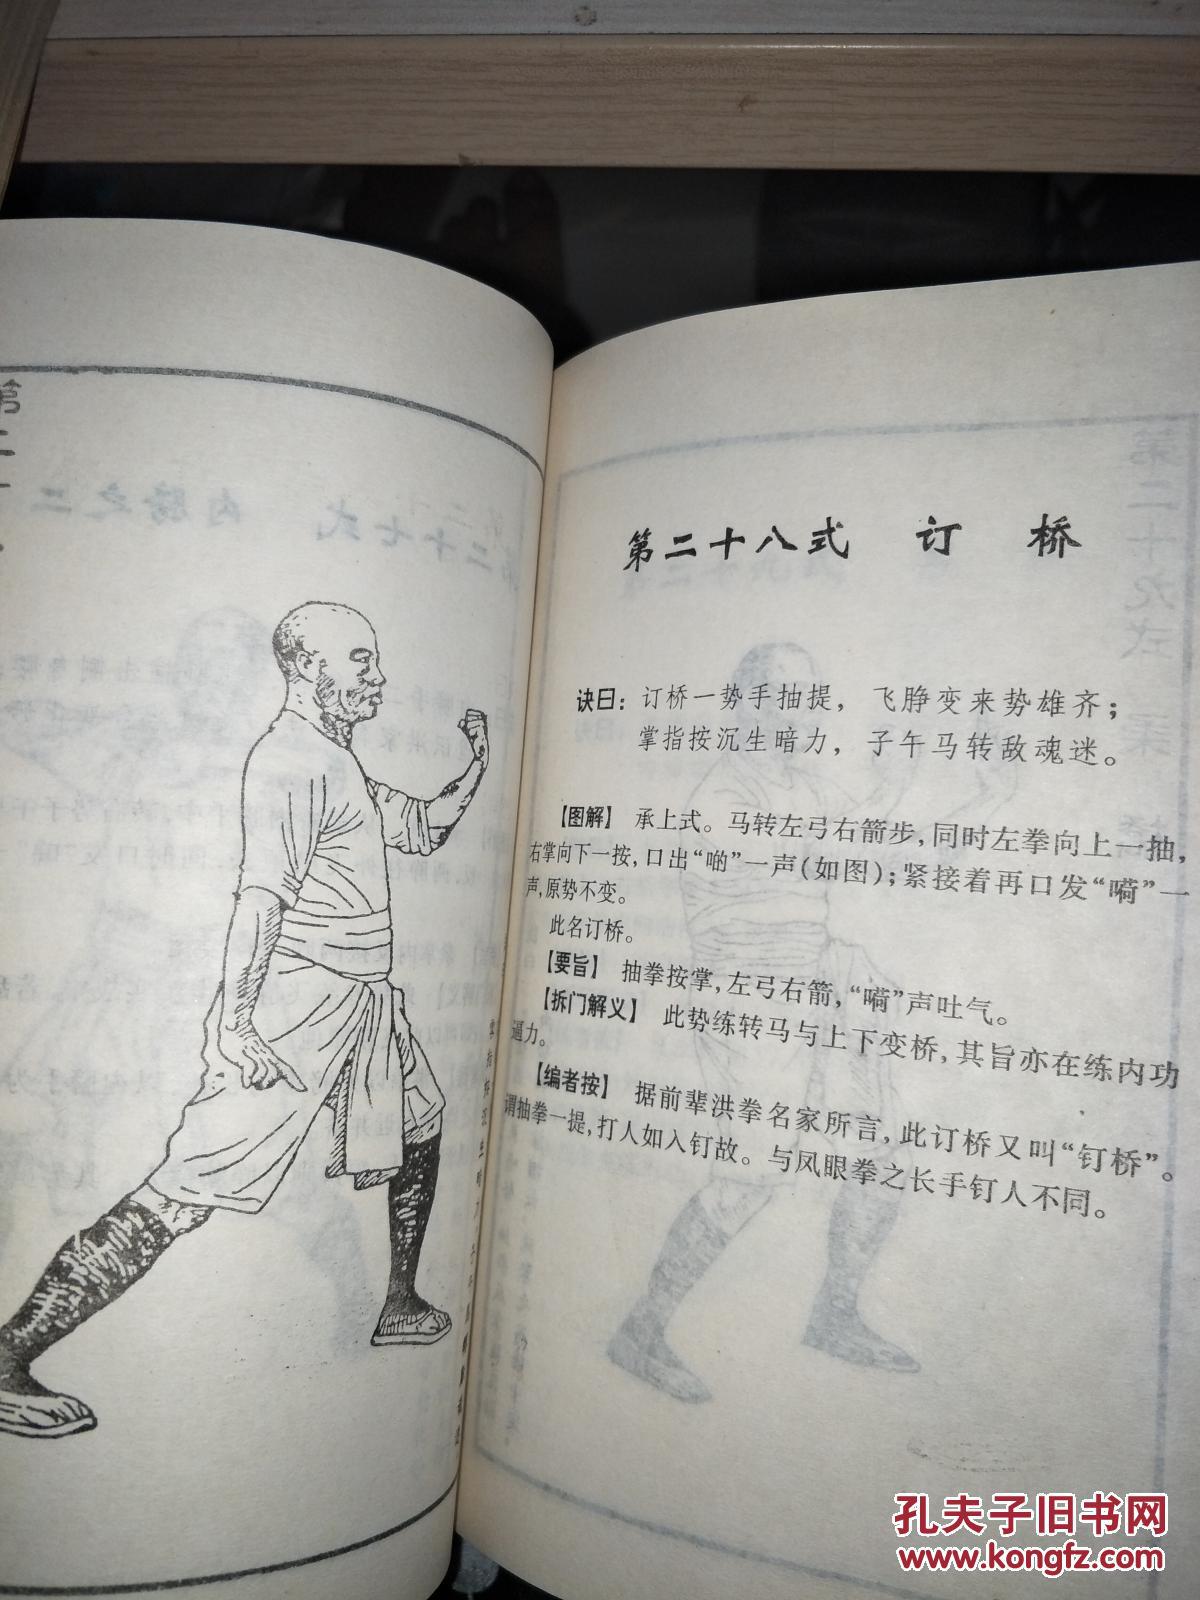 第二十八式 订 桥
诀曰：订桥一势手抽提，飞脖变来势雄齐；
掌指按沉生暗力，子午马转敌魂迷。
【图解】 承上式。马转左弓右箭步，同时左拳向上一抽，
右掌向下一按，口出“啲”一声（如图）；紧接着再口发“嗬”一
声，原势不变。
此名订桥。
【要旨】 抽拳按掌，左弓右箭，“嗬”声吐气。
【拆门解义】 此势练转马与上下变桥，其旨亦在练内功
逼力。
【编者按】 据前辈洪拳名家所言，此订桥又叫“钉桥”。
谓抽拳一提，打人如入钉故。与凤眼拳之长手钉人不同。
第二
掌指按沉生暗力 子午马转敌魂迷
孔夫子旧书网
www.kongfz.com